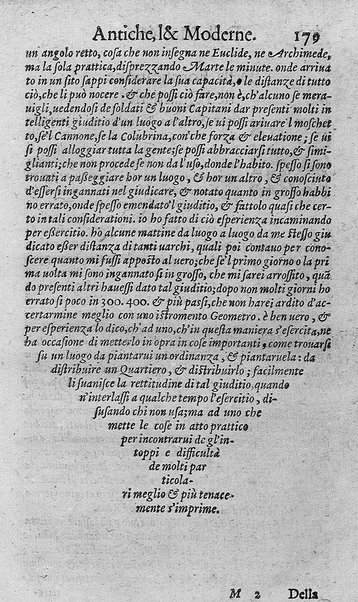 Antiche, l& Moderne. 179
un angolo retto, cosa che non insegna ne Euclide, ne Archimede,
ma la sola prattica, disprezzando Marte le minute. onde arriva
to in un sito sappi considerare la sua capacità, e le distanze di tutto
ciò, che li può nocere. & che possi ciò fare, non è, ch'alcuno se mera-
uigli, uedendosi de soldati & buoni Capitani dar presenti molti in
telligenti giuditio d'un luogo a l'altro, se ui possi ariuare l'moschet
to, se'l Cannone, se la Colubrina, con che forza & eleuatione; se ui
si possi alloggiar tutta la gente; se possi abbracciarsi tutto, & simi-
glianti; che non procede se non da l'uso, donde l'habito. spesso si sono
trouati a passeggiare hor un luogo, & hor un altro, & conosciuto
d'essersi ingannati nel giudicare, & notato quanto in grosso habbi
no errato, onde spesso emendato l giuditio, & fattolo quasi che cer-
to in tali considerationi. io ho fatto di ciò esperienza incaminando
per essercitio. hò alcune mattine da luogo a luogo da me stesso giu
dicato esser distanza di tanti uarchi, quali poi contauo per cono-
scere quanto mi fussi apposto al uero; che se'l primo giorno o la pri
ma uolta mi sono ingannato si in grosso, che mi sarei arrossito, quā
do presenti altri hauessi dato tal giuditio; dopo non molti giorni ho
errato sì poco in 300. 400. & più passi, che non harei ardito d'ac-
certarmine meglio con uno istromento Geometro. è ben uero, &
per esperienza lo dico, ch'ad uno, ch'in questa maniera s'esercita, ne
ha occasione di metterlo in opra in cose importanti, come trouarsi
su un luogo da piantarui un ordinanza, & piantaruela: da
distribuire un Quartiero, & distribuirlo; facilmente
li suanisce la rettitudine di tal giuditio quando
n'interlassi a qualche tempo l'esercitio, di-
susando chi non usa; ma ad uno che
mette le cose in atto prattico
per incontrarui de gl'in-
toppi e difficultà
de molti par
ticola-
ri meglio & più tenace-
mente s'imprime.
M 2 Della